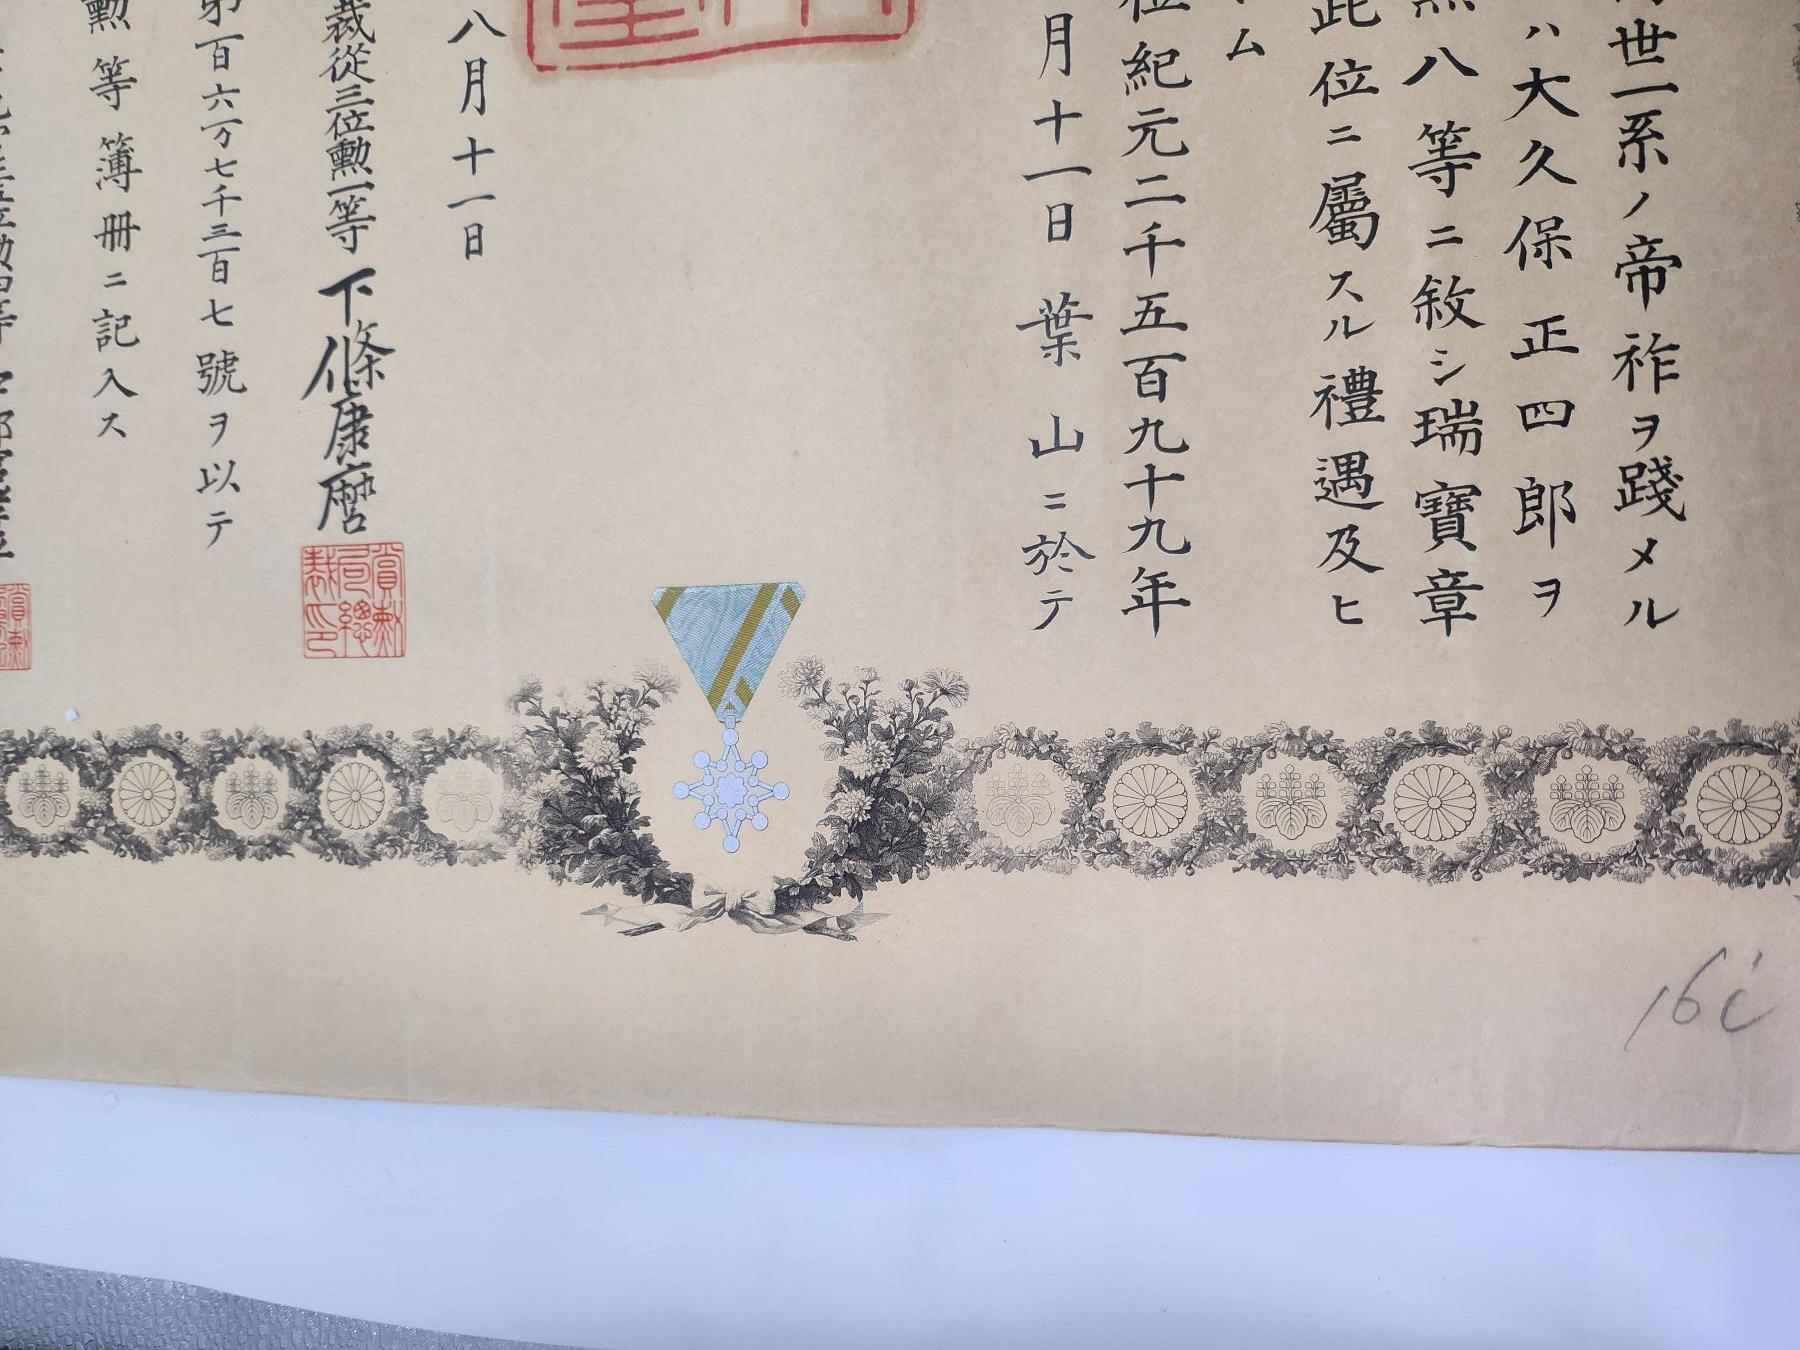 世一系ノ帝祚ヲ踐メル
ハ大久保正四郎ヲ
八等ニ敘シ瑞寶章
此位ニ屬スル禮遇及ヒ
ム
位紀元二千五百九十九年
月十一日葉山ニ於テ
八月十一日
裁從三位勲一等下條康麿
賞勲局總裁印
第百六万七千三百七號ヲ以テ
勲等簿冊ニ記入ス
16i